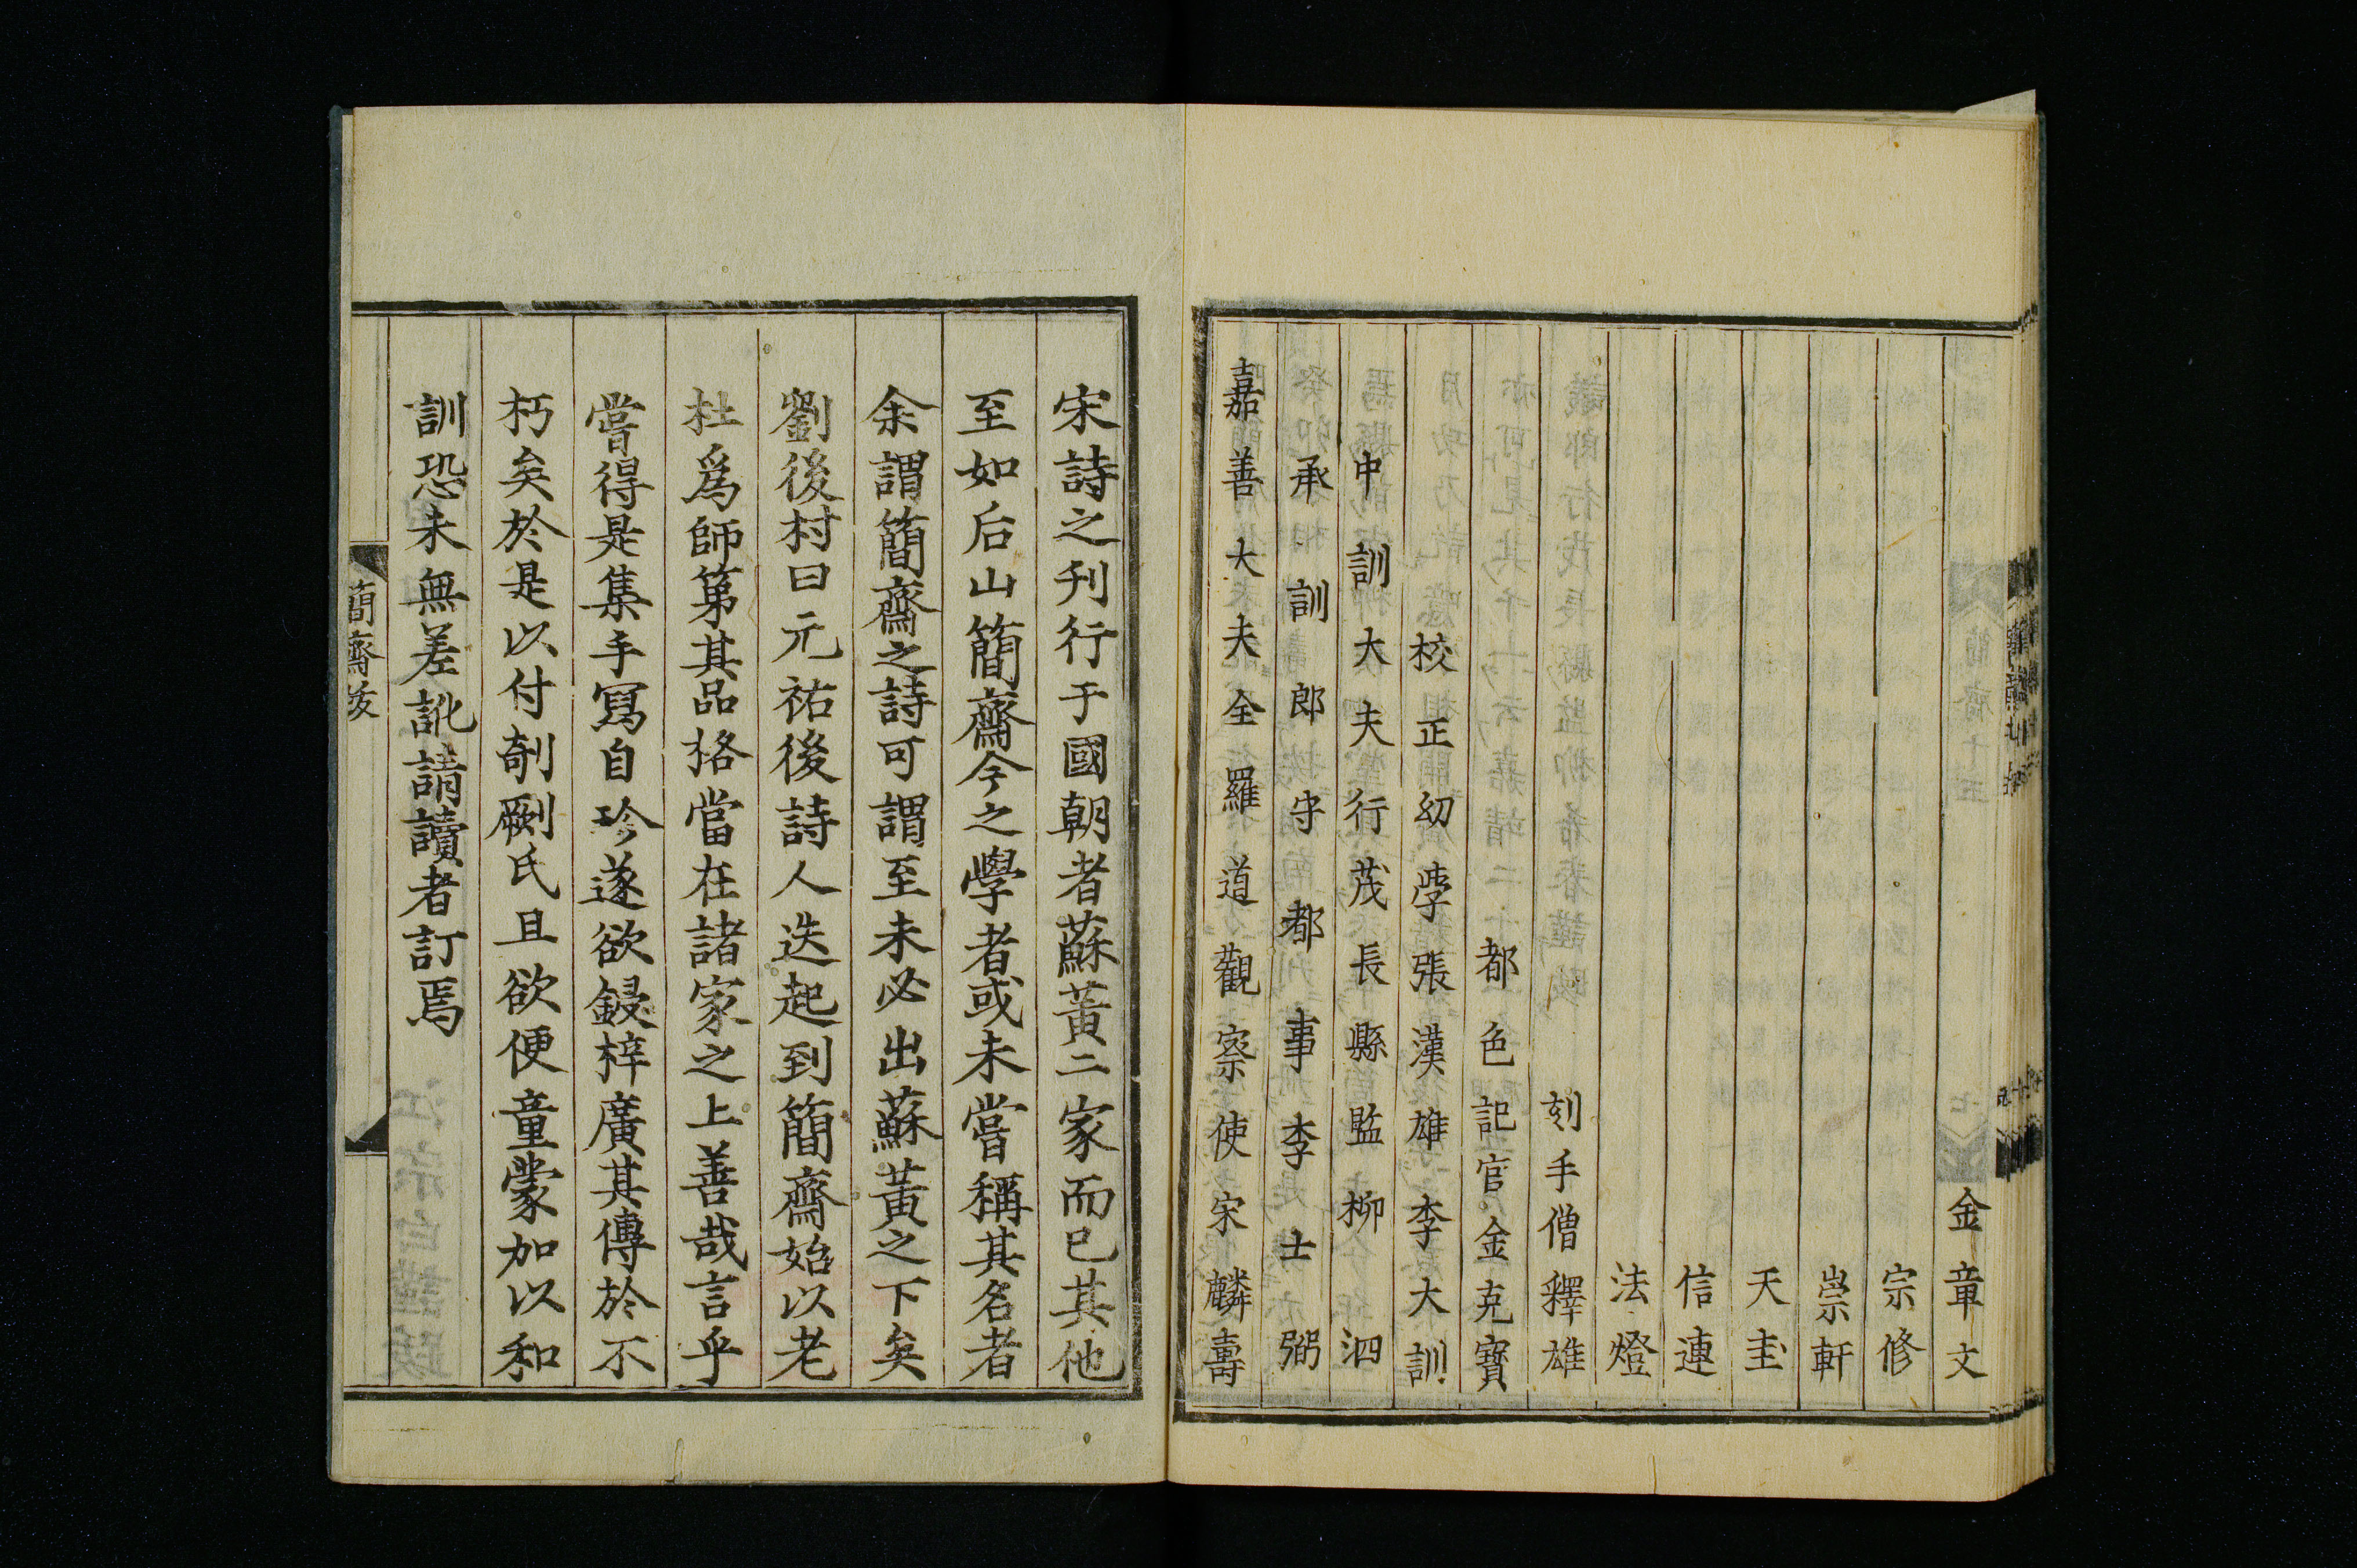 金章文
宗修
崇軒
天圭
信連
法燈
刻手僧釋雄
都色記官金克寶
校正幼學張漢雄李大訓
中訓大夫行茂長縣監柳泗
承訓郎守都事李士弼
嘉善大夫全羅道觀察使宋麟壽
宋詩之刊行于國朝者蘇黃二家而已其他
至如后山簡齋今之學者或未嘗稱其名者
余謂簡齋之詩可謂至未必出蘇黃之下矣
劉後村曰元祐後詩人迭起到簡齋始以老
杜爲師第其品格當在諸家之上善哉言乎
嘗得是集手寫自珍遂欲鋟梓廣其傳於不
朽矣於是以付剞劂氏且欲便童蒙加以和
訓恐未無差訛請讀者訂焉
簡齋跋